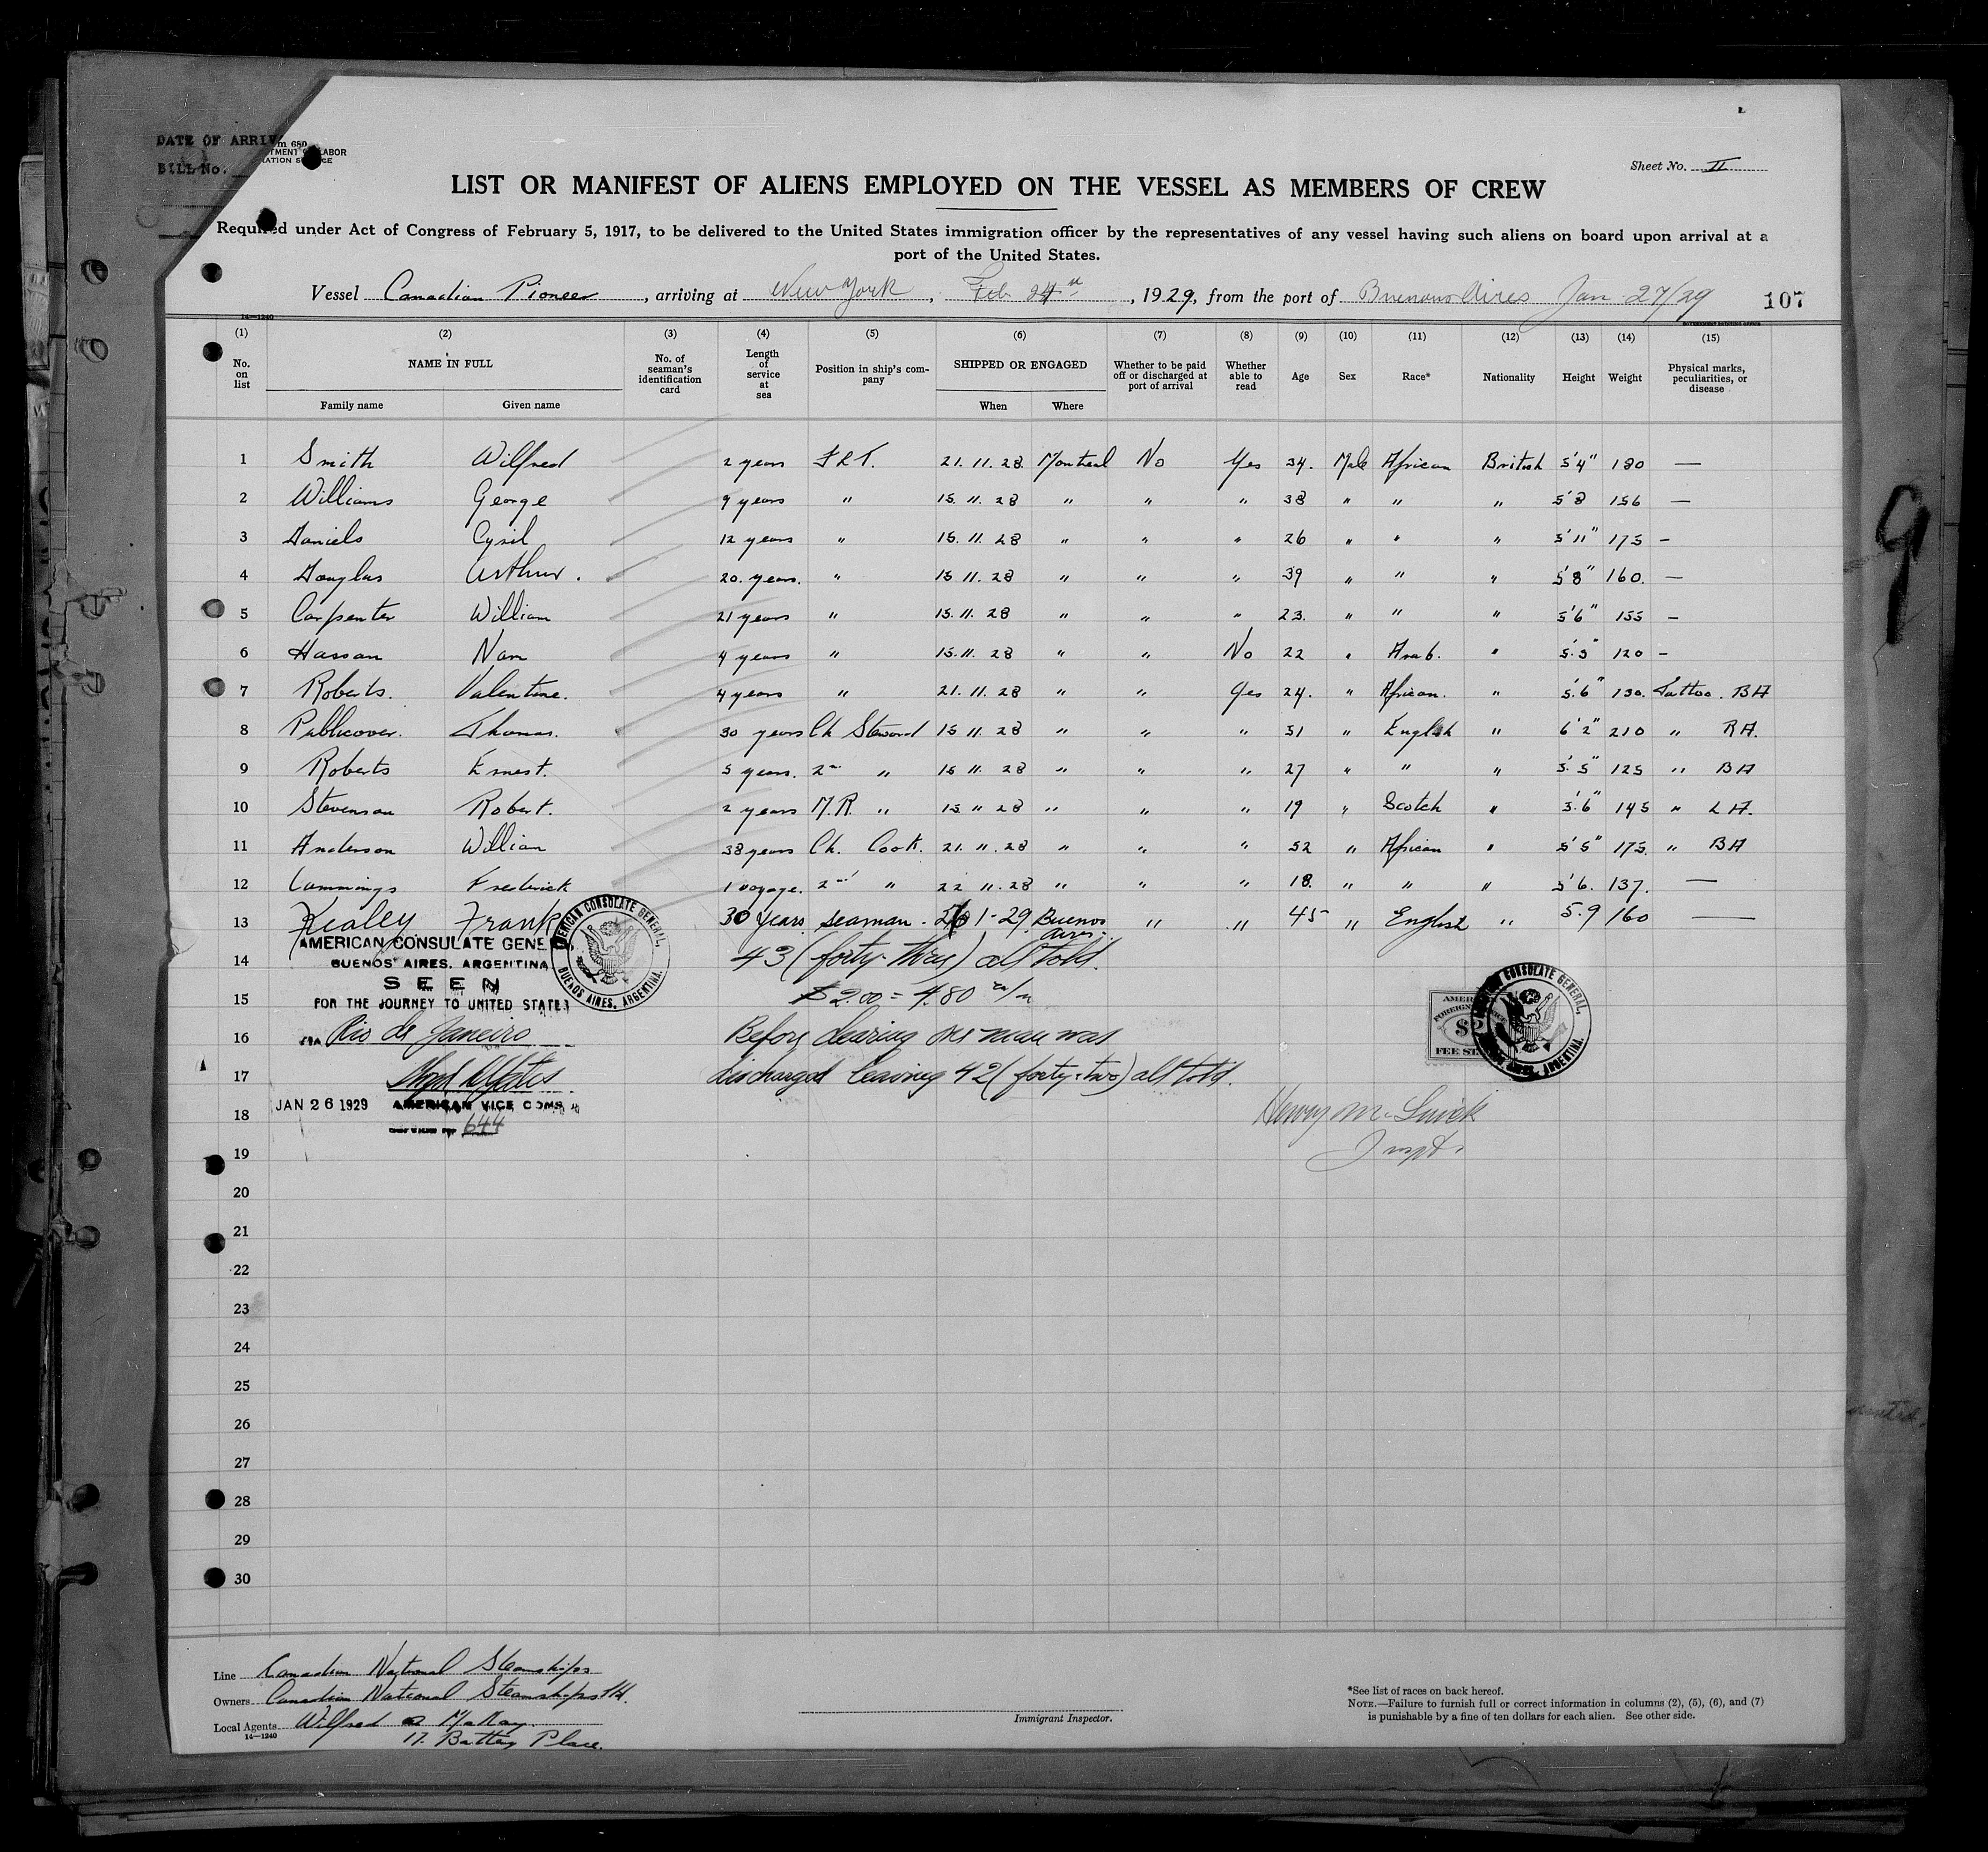 DATE OF ARRIV
BILL No.
m 680
TMENT OF LABOR
RATION SERVICE
Sheet No. II
LIST OR MANIFEST OF ALIENS EMPLOYED ON THE VESSEL AS MEMBERS OF CREW
Required under Act of Congress of February 5, 1917, to be delivered to the United States immigration officer by the representatives of any vessel having such aliens on board upon arrival at a
port of the United States.
Vessel Canadian Pioneer, arriving at New York, Feb 24th, 1929, from the port of Buenos Aires Jan 27/29 107
14—1240
(1) (2) (3) (4) (5) (6) (7) (8) (9) (10) (11) (12) (13) (14) (15)
No. on list NAME IN FULL Family name Given name No. of seaman's identification card Length of service at sea Position in ship's company SHIPPED OR ENGAGED When Where Whether to be paid off or discharged at port of arrival Whether able to read Age Sex Race* Nationality Height Weight Physical marks, peculiarities, or disease
1 Smith Wilfred 2 years 21. 11. 28. Montreal No Yes 34. Male African British 5'4" 180 —
2 Williams George 9 years " 15. 11. 28 " " " 38 " " " 5'8 156 —
3 Daniels Cyril 12 years " 15. 11. 28 " " " 26 " " " 5'11" 175 –
4 Douglas Arthur. 20. years. " 15 11. 28 " " " 39 " " " 5'8" 160. —
5 Carpenter William 21 years " 15. 11. 28 " " " 23. " " " 5'6" 155 –
6 Hassan Nan 4 years " 15. 11. 28 " " No 22 " Arab. " 5.5" 120 –
7 Roberts. Valentine. 4 years " 21. 11. 28 " " Yes 24. " African. " 5.6" 130. Tattoo. BA
8 Publicover. Thomas. 30 years Ch Steward 15 11. 28 " " " 51 " English " 6'2" 210 " RA.
9 Roberts Ernest. 5 years. 2nd " 15 11. 28 " " " 27 " " " 5.5" 125 " BA
10 Stevenson Robert. 2 years M.R. " 15 11 28 " " " 19 " Scotch " 5.6" 145 " LA.
11 Anderson William 38 years Ch. Cook. 21. 11. 28 " " " 52 " African " 5'5" 175. " BA
12 Cummings Frederick 1 voyage. 2nd " 22 11. 28 " " " 18. " " " 5'6. 137. —
13 Kealey Frank 30 years seaman. 1-29 Buenos Aires. " " 45 " English " 5.9 160 —
14 43 (forty-three) all told.
15 $2.00 = 4.80
16 Before clearing one man was
17 discharged leaving 42 (forty-two) all told.
18
19
20
21
22
23
24
25
26
27
28
29
30
AMERICAN CONSULATE GENE
BUENOS AIRES, ARGENTINA
SEEN
FOR THE JOURNEY TO UNITED STATES
VIA Rio de Janeiro
JAN 26 1929 AMERICAN VICE CONS
644
AMERICAN CONSULATE GENERAL,
BUENOS AIRES, ARGENTINA.
AMERI
FOREIGN SERVICE
$2
FEE ST
CONSULATE GENERAL,
AIRES, ARGENTINA.
Henry M.
Inspt.
9
Line Canadian National Steamships
Owners Canadian National Steamships Ltd.
Local Agents Wilfred McKay.
14—1240
17. Battery Place.
Immigrant Inspector.
*See list of races on back hereof.
NOTE.—Failure to furnish full or correct information in columns (2), (5), (6), and (7)
is punishable by a fine of ten dollars for each alien. See other side.